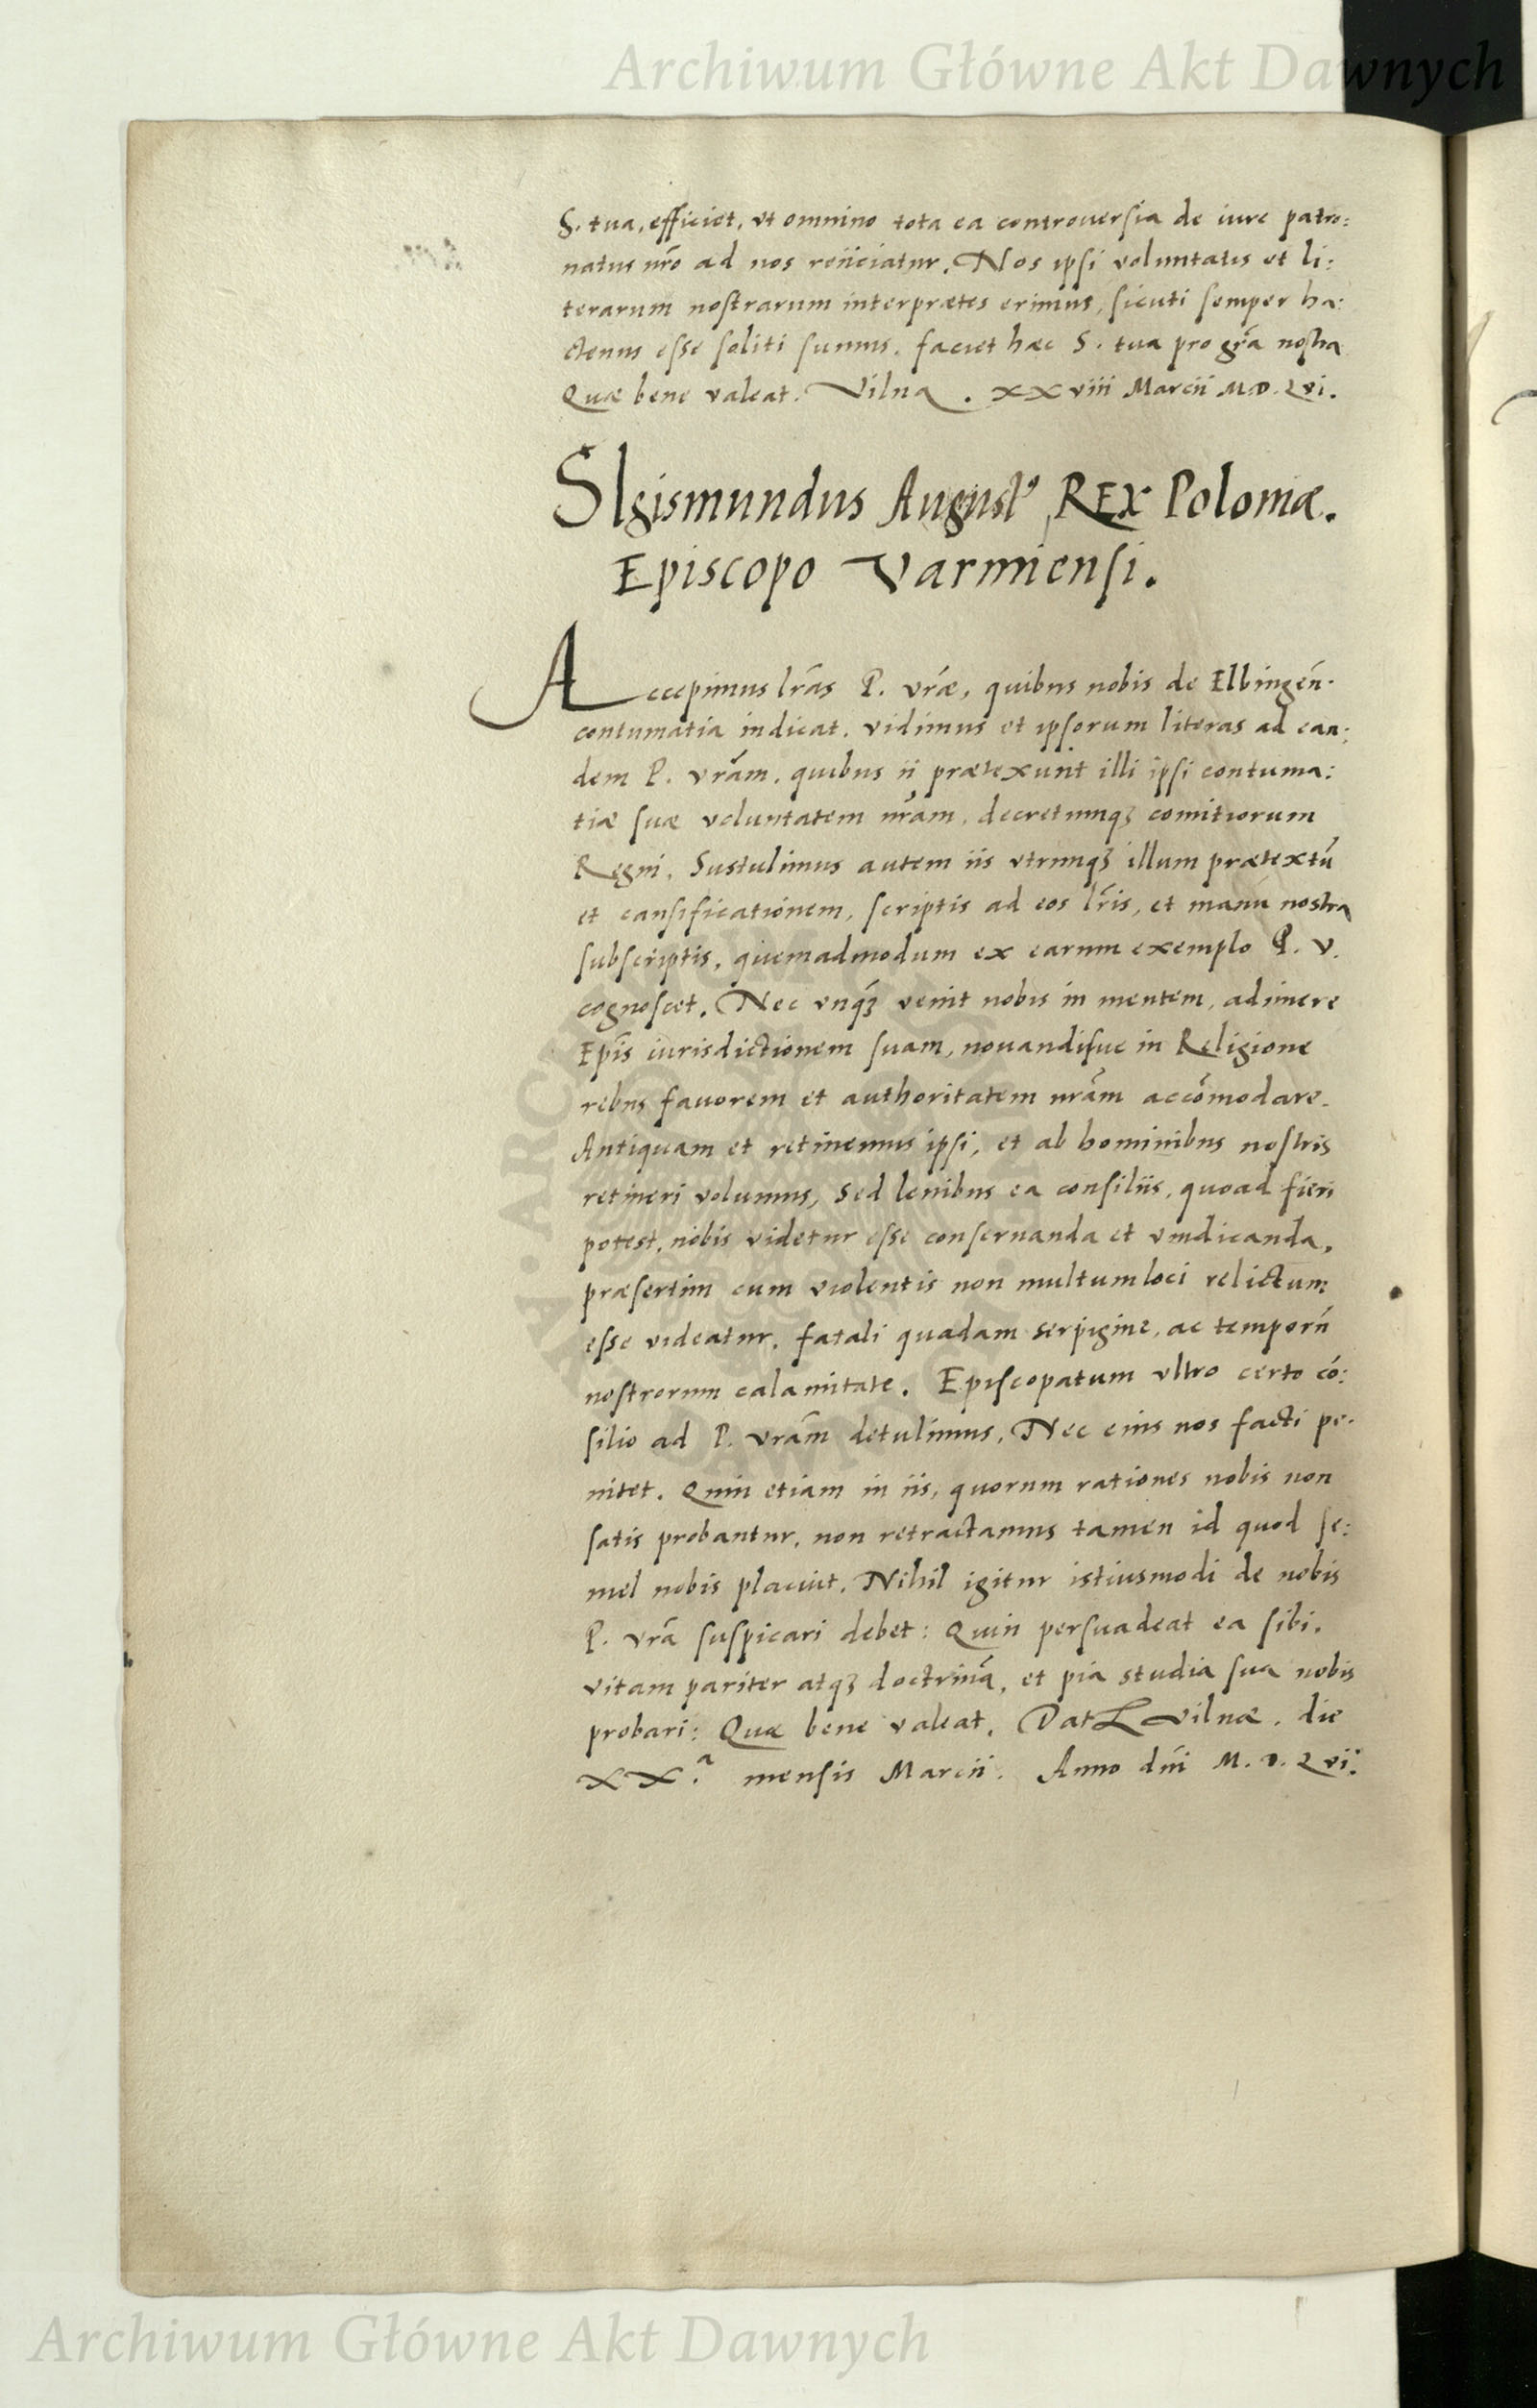 Archiwum Główne Akt Dawnych
S. tua, efficiet, vt omnino tota ea controuersia de iure patro:
natus nr̃o ad nos reiiciatur. Nos ipsi voluntatis et li:
terarum nostrarum interprætes erimus, sicuti semper ha:
ctenus esse soliti sumus. faciet hæc S. tua pro gr̃a nostra
Quæ bene valeat. Vilna. XXviii Marcii M.D.Lvi.
SIgismundus August⁹ REX Poloniæ.
Episcopo Varmiensi.
Accepimus lr̃as P. vr̃æ, quibus nobis de Elbingeñ.
contumatia indicat. vidimus et ipsorum literas ad ean:
dem P. vr̃am, quibus ii prætexunt illi ipsi contuma:
tiæ suæ voluntatem nr̃am, decretumqꝫ comitiorum
Regni. Sustulimus autem iis vtrumqꝫ illum prætextū
et causificationem, scriptis ad eos lr̃is, et manu nostra
subscriptis, quemadmodum ex earum exemplo P. V.
cognoscet. Nec vnqꝫ venit nobis in mentem, adimere
Ep̃is iurisdictionem suam, nouandisue in Religione
rebus fauorem et authoritatem nr̃am accōmodare.
Antiquam et retinemus ipsi, et ab hominibus nostris
retineri volumus, Sed lenibus ea consiliis, quoad fieri
potest, nobis videtur esse conseruanda et vindicanda,
præsertim cum violentis non multum loci relictum
esse videatur, fatali quadam serpigine, ac temporū
nostrorum calamitate. Episcopatum vltro certo cō:
silio ad P. vr̃am detulimus, Nec eius nos facti pe:
nitet. Quin etiam in iis, quorum rationes nobis non
satis probantur, non retractamus tamen id quod se:
mel nobis placuit. Nihil igitur istiusmodi de nobis
P. vr̃a suspicari debet: Quin persuadeat ea sibi,
vitam pariter atqꝫ doctrinā, et pia studia sua nobis
probari: Quæ bene valeat. Dat Vilnæ. die
XX.ᵃ mensis Marcii. Anno dñi M.D.Lvi.
Archiwum Główne Akt Dawnych